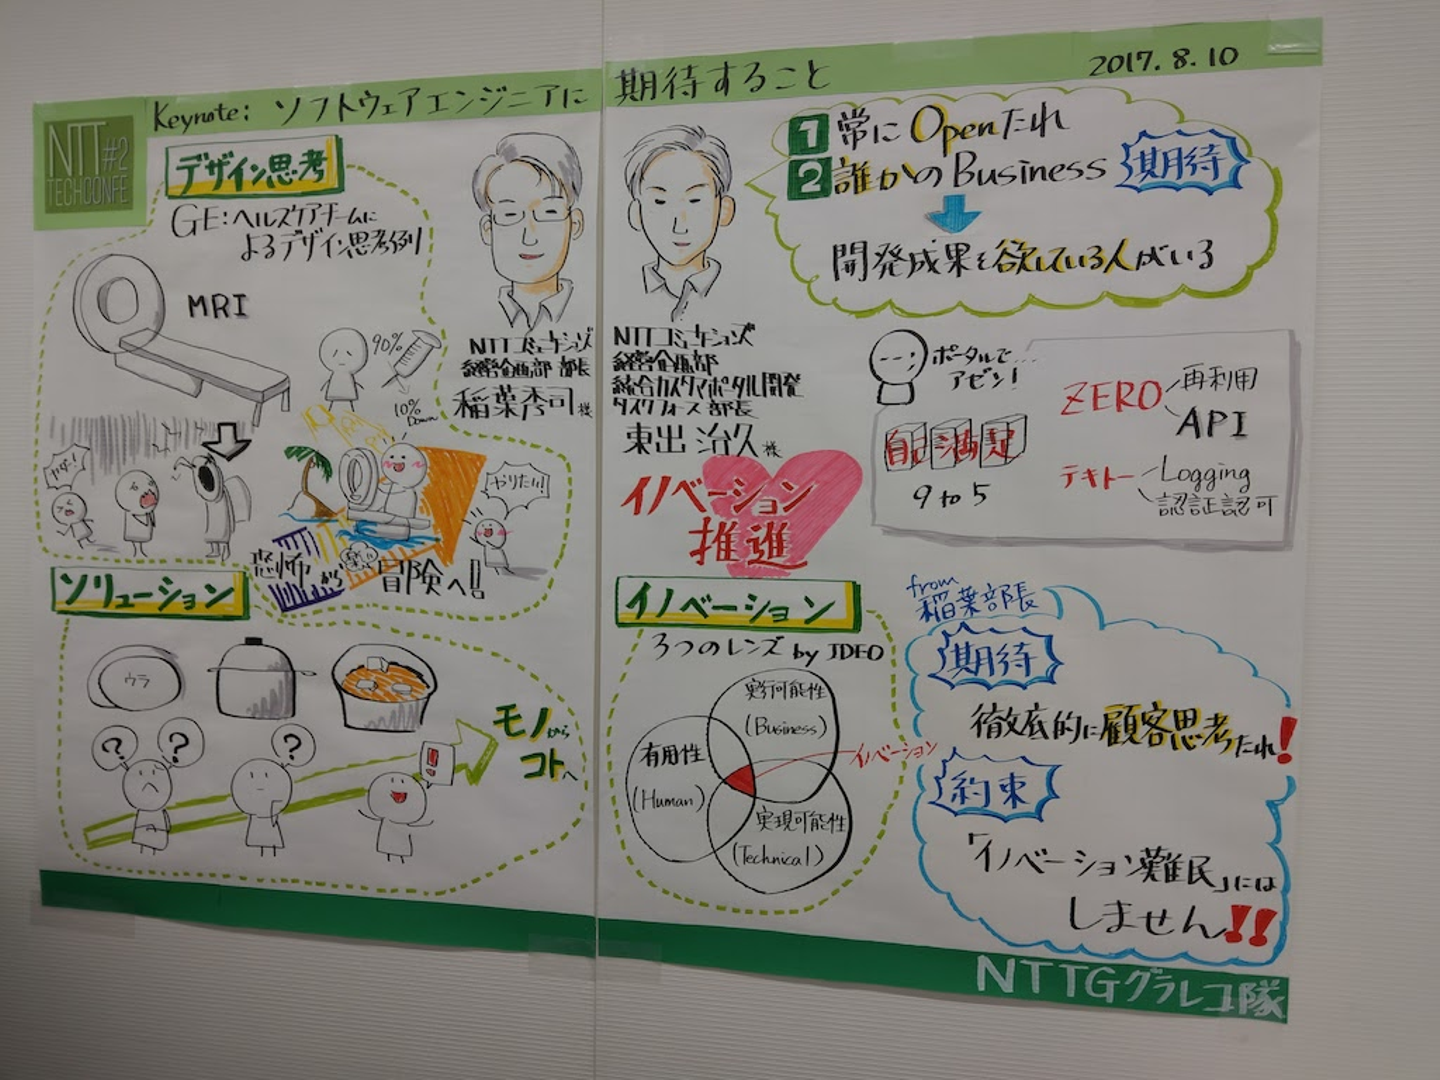 Keynote: ソフトウェアエンジニアに期待すること
2017.8.10
NTT #2
TECHCONFE
デザイン思考
GE:ヘルスケアチームに
よるデザイン思考例
MRI
90%
10%
Down
ヤダー!
やりたい!
恐怖から
楽しい
冒険へ!!
NTTコミュニケーションズ
経営企画部 部長
稲葉秀司様
ソリューション
ウラ
?
?
?
!
モノから
コトへ
NTTコミュニケーションズ
経営企画部
統合カスタマポータル開発
タスクフォース 部長
東出 治久様
イノベーション
推進
1 常にOpenたれ
2 誰かのBusiness
期待
開発成果を欲している人がいる
ポータルで...
アゼン!
自己満足
9 to 5
ZERO
再利用
API
テキトー
Logging
認証認可
イノベーション
3つのレンズ by IDEO
実行可能性
(Business)
有用性
(Human)
実現可能性
(Technical)
イノベーション
from
稲葉部長
期待
徹底的に顧客思考たれ!
約束
「イノベーション難民」には
しません!!
NTTGグラレコ隊